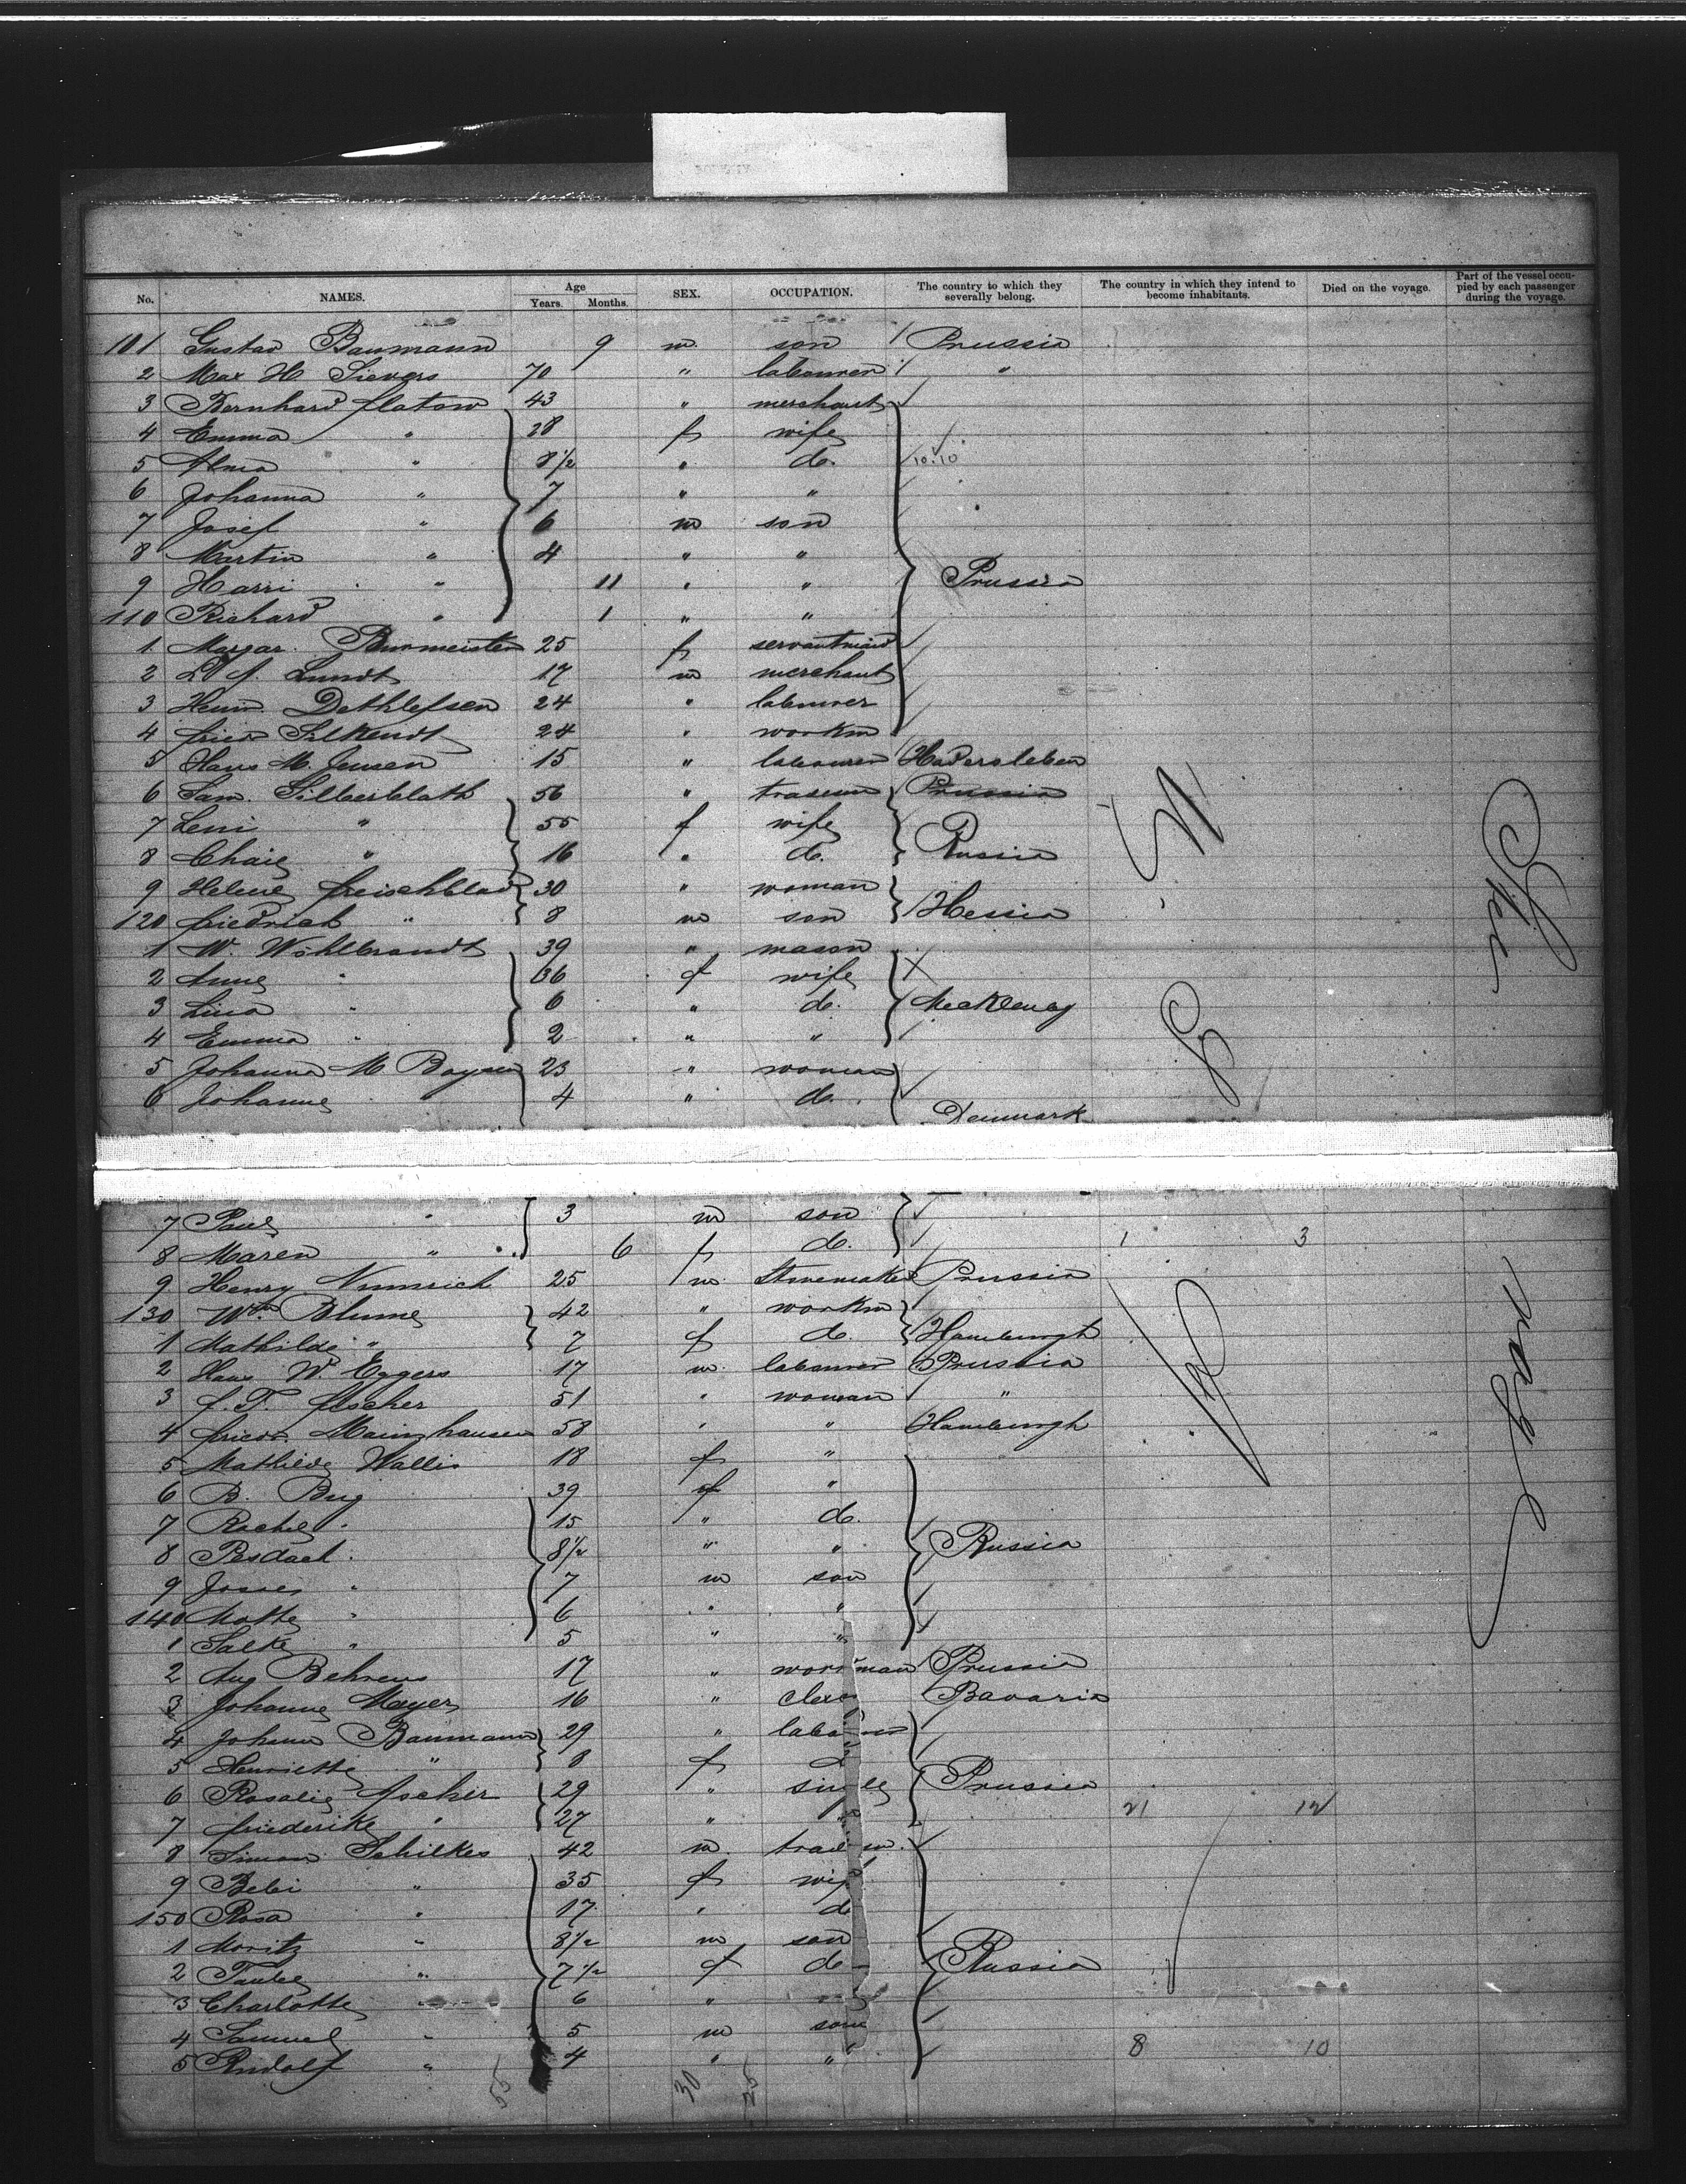 No. NAMES. Age Years. Months. SEX. OCCUPATION. The country to which they severally belong. The country in which they intend to become inhabitants. Died on the voyage. Part of the vessel occupied by each passenger during the voyage.
101 Gustav Baumann 9 m. son Prussia
2 Max H Sievers 70 " labourer "
3 Bernhard Flatow 43 " merchant
4 Emma " 28 f wife
5 Alma " 8 1/2 " do. 10.10
6 Johanna " 7 " "
7 Josef " 6 m son
8 Martin " 4 " "
9 Harri " 11 " " Prussia
110 Richard " 1 " "
1 Margar. Burmeister 25 f servantmaid
2 Lundt 17 m merchant
3 Heinr. Dethlefsen 24 " labourer
4 24 " workm
5 Hans M. Jensen 15 " labourer Hadersleben
6 Sam. Silberblath 56 " Prussia
7 Leni " 55 f wife Russia
8 Chaie " 16 " do.
9 Helene Freischblad 30 " woman
120 Friedrich " 8 m son Hessia
1 W. Wohlbrandt 39 " mason
2 Anne " 36 f wife
3 Lina " 6 " do.
4 Emma " 2 " "
5 Johanna M Boysen 23 " woman
6 Johanne " 4 " do. Denmark
7 Paul " 3 m son
8 Maren " 6 f do. 1 3
9 Henry 25 m. Prussia
130 Wm. Blume 42 " workm
1 Mathilde " 7 f do. Hamburgh
2 Hans W. Eggers 17 m. labourer Prussia
3 F. T. Ascher 51 " woman "
4 Friedr. Mainzhausen 58 " " Hamburgh
5 Mathilde Wallis 18 f "
6 B. Bug 39 f "
7 Rachel " 15 " do.
8 8 1/2 " " Russia
9 7 m son
140 Motte " 6 " "
1 Salke " 5 " "
2 Aug Behrens 17 " workman Prussia
3 Johanne Mayer 16 " Bavaria
4 Johann Baumann 29 " labourer
5 Henriette " 8 f
6 Rosalie Ascher 29 " single Prussia 21 12
7 Friederike " 27 " "
8 Simon Schilkes 42 m.
9 Bebi " 35 f wife
150 Rosa " 17 " do
1 Moritz " 8 1/2 m son
2 Taube " 7 1/2 f do Russia
3 Charlotte " 6 "
4 Samuel " 5 m son
5 Rudolf " 4 " " 8 10
55 30 25